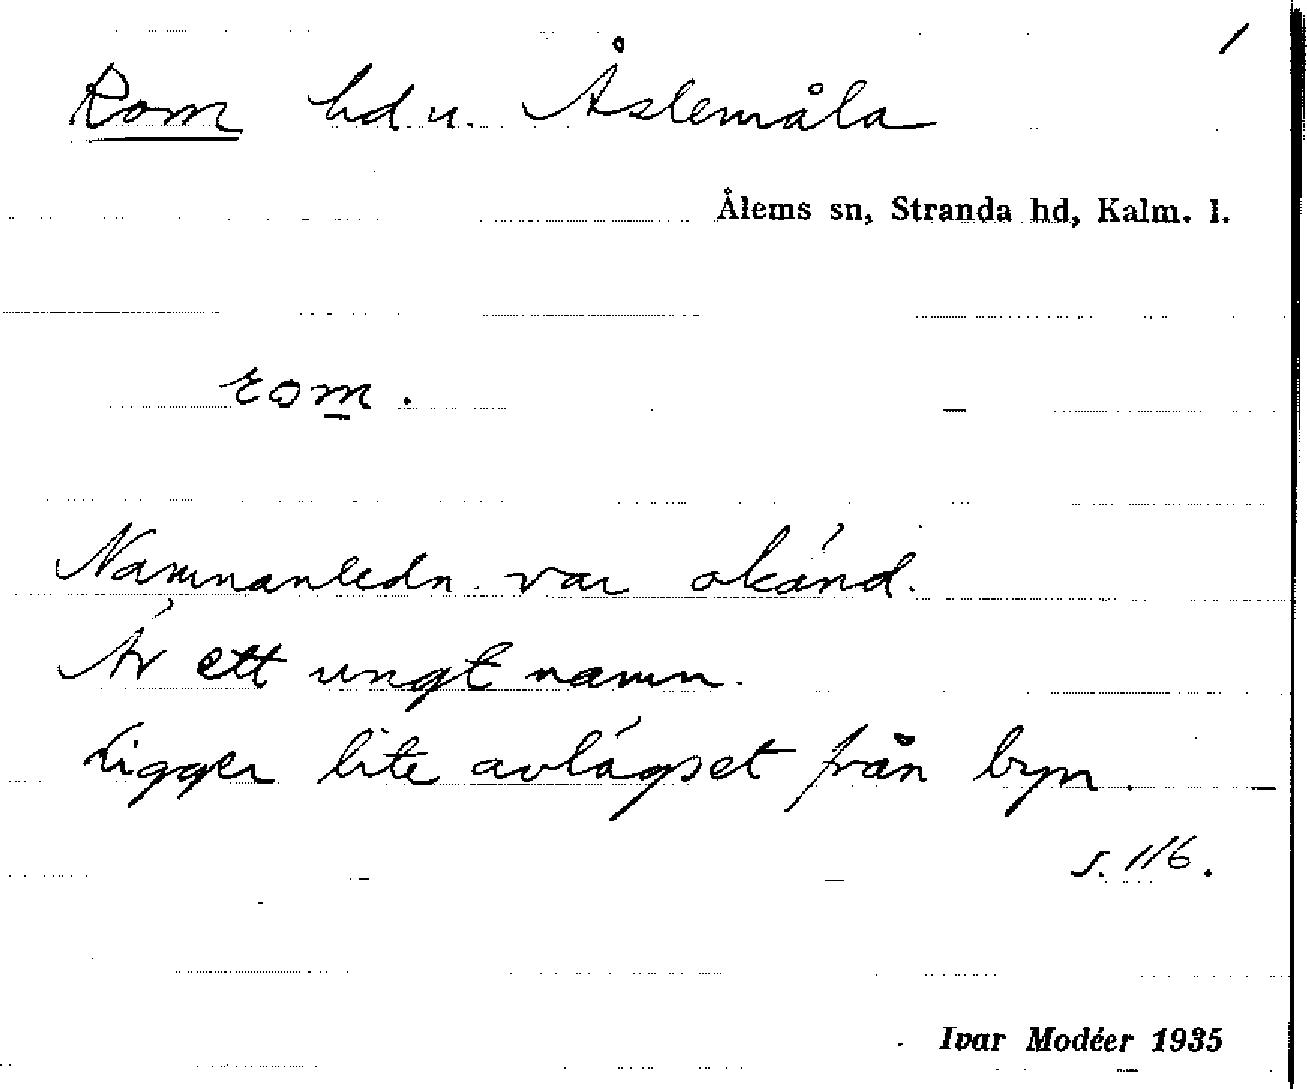 /
Rom hd u. Åslemåla
Ålems sn, Stranda hd, Kalm. l.
rom.
Namnanledn. var okänd.
Är ett ungt namn.
Ligger lite avlägset från byn.
s. 116.
Ivar Modéer 1935